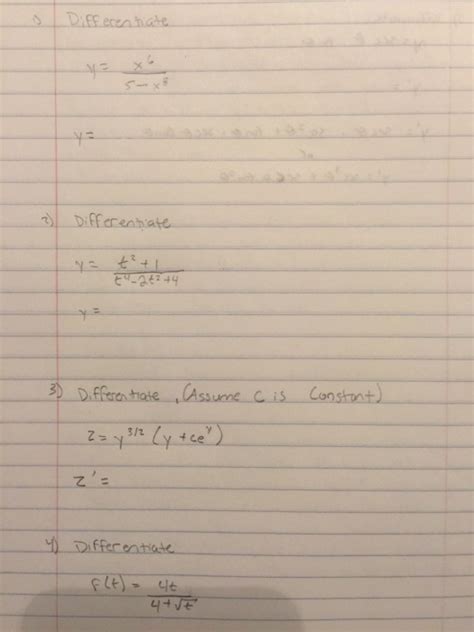 1) Differentiate
y = x^6 / 5 - x^8
y =
2) Differentiate
y = t^2 + 1 / t^4 - 2t^2 + 4
y =
3) Differentiate, (Assume C is Constant)
z = y^3/2 (y + ce^y)
z' =
4) Differentiate
f(t) = 4t / 4 + √t